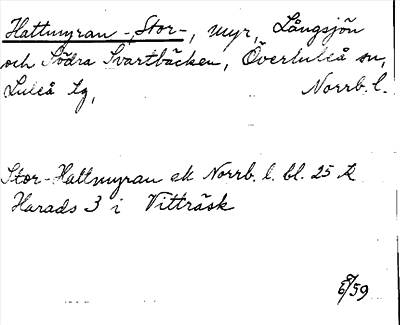 Hattmyran -, Stor-, myr, Långsjön
och Södra Svartbäcken, Överluleå sn,
Luleå tg, Norrb. l.
Stor-Hattmyran ek Norrb. l. bl. 25
Harads 3 i Vitträsk
/59